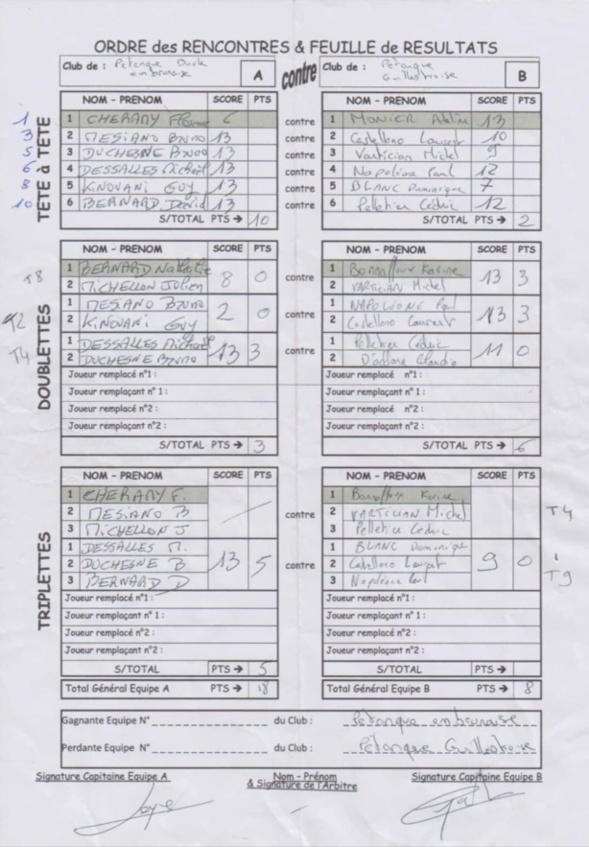 ORDRE des RENCONTRES & FEUILLE de RESULTATS
Club de : Pétanque embrunaise A contre Club de : Pétanque Guillestroise B
NOM - PRENOM SCORE PTS NOM - PRENOM SCORE PTS
TÊTE à TÊTE
1 3 5 6 8 10
1 CHERAMY 6 contre 1 MONIER 13
2 MESIANO BRUNO 13 contre 2 Castellano Laurent 10
3 DUCHESNE BRUNO 13 contre 3 Vartician Michel 9
4 DESSALLES Michel 13 contre 4 Napoléone Paul 12
5 KINOVANI GUY 13 contre 5 BLANC Dominique 7
6 BERNARD David 13 contre 6 Pelletier Cédric 12
S/TOTAL PTS → 10 S/TOTAL PTS → 2
DOUBLETTES
NOM - PRENOM SCORE PTS NOM - PRENOM SCORE PTS
T8
1 BERNARD Nathalie 8 0 contre 1 Karine 13 3
2 MICHELLON Julien 2 VARTICIAN Michel
T2
1 MESIANO BRUNO 2 0 contre 1 NAPOLEONE Paul 13 3
2 KINOVANI GUY 2 Castellano Laurent
T4
1 DESSALLES Michel 13 3 contre 1 Pelletier Cédric 11 0
2 DUCHESNE BRUNO 2 Claudio
Joueur remplacé n°1 : Joueur remplacé n°1 :
Joueur remplaçant n° 1 : Joueur remplaçant n° 1 :
Joueur remplacé n°2 : Joueur remplacé n°2 :
Joueur remplaçant n°2 : Joueur remplaçant n°2 :
S/TOTAL PTS → 3 S/TOTAL PTS → 6
TRIPLETTES
NOM - PRENOM SCORE PTS NOM - PRENOM SCORE PTS
1 CHERAMY F. contre 1 Karine
2 MESIANO B 2 VARTICIAN Michel T4
3 MICHELLON J 3 Pelletier Cédric
1 DESSALLES M. 13 5 contre 1 BLANC Dominique 9 0
2 DUCHESNE B 2 Castellano Laurent T9
3 BERNARD D 3 Napoléone Paul
Joueur remplacé n°1 : Joueur remplacé n°1 :
Joueur remplaçant n° 1 : Joueur remplaçant n° 1 :
Joueur remplacé n°2 : Joueur remplacé n°2 :
Joueur remplaçant n°2 : Joueur remplaçant n°2 :
S/TOTAL PTS → 5 S/TOTAL PTS → 0
Total Général Equipe A PTS → 18 Total Général Equipe B PTS → 8
Gagnante Equipe N° du Club : Pétanque embrunaise
Perdante Equipe N° du Club : Pétanque Guillestroise
Signature Capitaine Equipe A Nom - Prénom Signature Capitaine Equipe B
& Signature de l'Arbitre